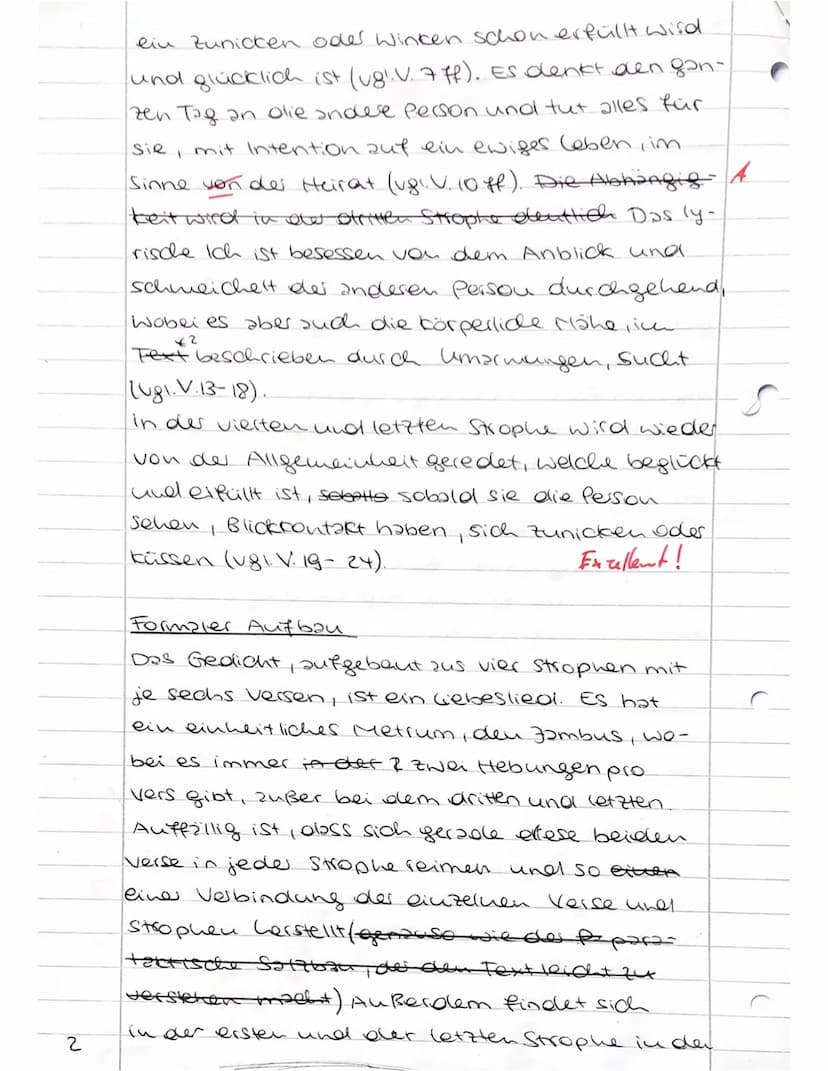 ein zunicken oder Winken schon erfüllt wird
und glücklich ist (vgl. V. 7 ff). Es denkt den gan-
zen Tag an die andere Person und tut alles für
sie, mit Intention auf ein ewiges Leben, im
Sinne von der Heirat (vgl. V. 10 ff). Die Abhängig- A
keit wird in der dritten Strophe deutlich Das ly-
rische Ich ist besessen von dem Anblick und
schmeichelt der anderen Person durchgehend,
wobei es aber auch die körperliche Nähe, im
Text *2 beschrieben durch Umarmungen, sucht
(vgl. V. 13-18).
in der vierten und letzten Strophe wird wieder
von der Allgemeinheit geredet, welche beglückt
und erfüllt ist, sobald sie die Person
sehen, Blickkontakt haben, sich zunicken oder
küssen (vgl. V. 19-24). Exzellent!
Formaler Aufbau
Das Gedicht, aufgebaut aus vier Strophen mit
je sechs Versen, ist ein Liebeslied. Es hat
ein einheitliches Metrum, den Jambus, wo-
bei es immer in der 2 zwei Hebungen pro
Vers gibt, außer bei dem dritten und letzten.
Auffällig ist, dass sich gerade diese beiden
Verse in jeder Strophe reimen und so einen
einer Verbindung der einzelnen Verse und
Strophen herstellt (genauso wie der para-
taktische Satzbau, der den Text leicht zu
verstehen macht) Außerdem findet sich
in der ersten und der letzten Strophe in der
2